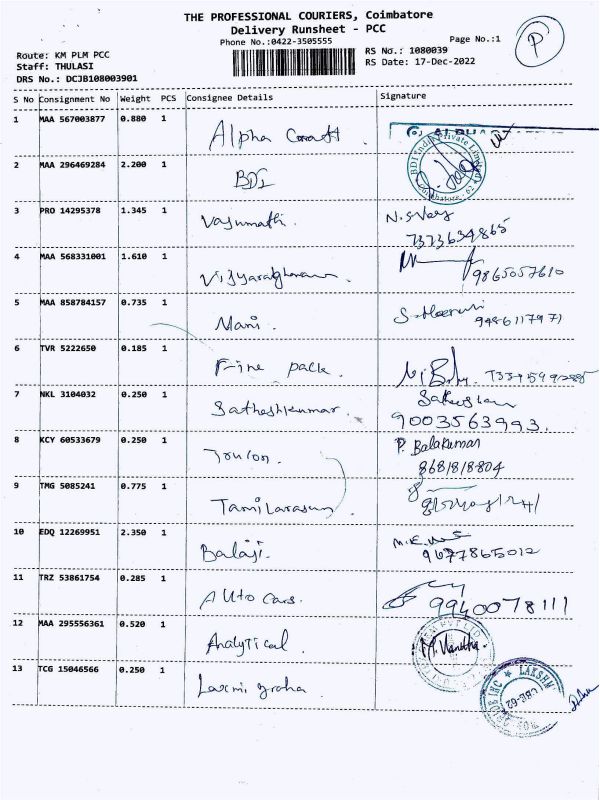 THE PROFESSIONAL COURIERS, Coimbatore
Delivery Runsheet - PCC
Phone No.:0422-3505555
Page No.:1
P
Route: KM PLM PCC
Staff: THULASI
DRS No.: DCJB108003901
RS No.: 1080039
RS Date: 17-Dec-2022
S No Consignment No Weight PCS Consignee Details Signature
1 MAA 567003877 0.880 1 Alpha
2 MAA 296469284 2.200 1 BDI
BDI India Private Limited
Coimbatore
3 PRO 14295378 1.345 1 Vasumathi.
7373634865
4 MAA 568331001 1.610 1
9865057610
5 MAA 858784157 0.735 1 Mani.
6 TVR 5222650 0.185 1 Fine pack.
7 NKL 3104032 0.250 1 Satheshkumar.
9003563993.
8 KCY 60533679 0.250 1
P. Balakumar
8681818804
9 TMG 5085241 0.775 1 Tamilarasan
10 EDQ 12269951 2.350 1 Balaji.
9677865012
11 TRZ 53861754 0.285 1 Auto Cars.
9940078111
12 MAA 295556361 0.520 1 Analytical.
13 TCG 15046566 0.250 1 Laxmi graha
LAKSHM
CBE-62